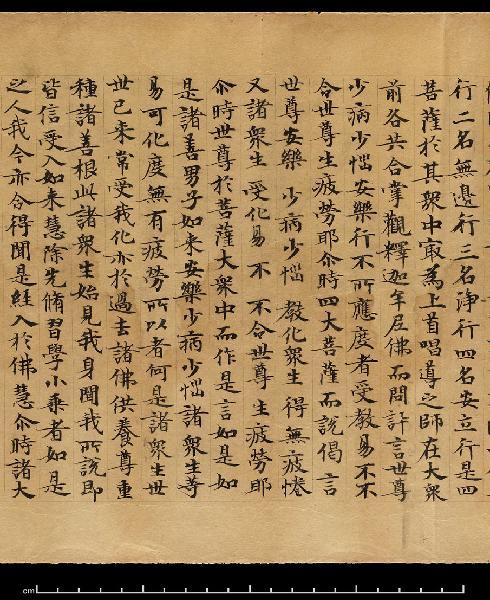 行二名無邊行三名淨行四名安立行是四
菩薩於其衆中㝡為上首唱導之師在大衆
前各共合掌觀釋迦牟尼佛而問訊言世尊
少病少惱安樂行不所應度者受教易不不
令世尊生疲勞耶尒時四大菩薩而說偈言
世尊安樂 少病少惱 教化衆生 得無疲惓
又諸衆生 受化易不 不令世尊 生疲勞耶
尒時世尊於菩薩大衆中而作是言如是如
是諸善男子如来安樂少病少惱諸衆生等
易可化度無有疲勞所以者何是諸衆生世
世已来常受我化亦於過去諸佛供養尊重
種諸善根此諸衆生始見我身聞我所說即
皆信受入如来慧除先脩習學小乘者如是
之人我今亦令得聞是經入於佛慧尒時諸大
cm